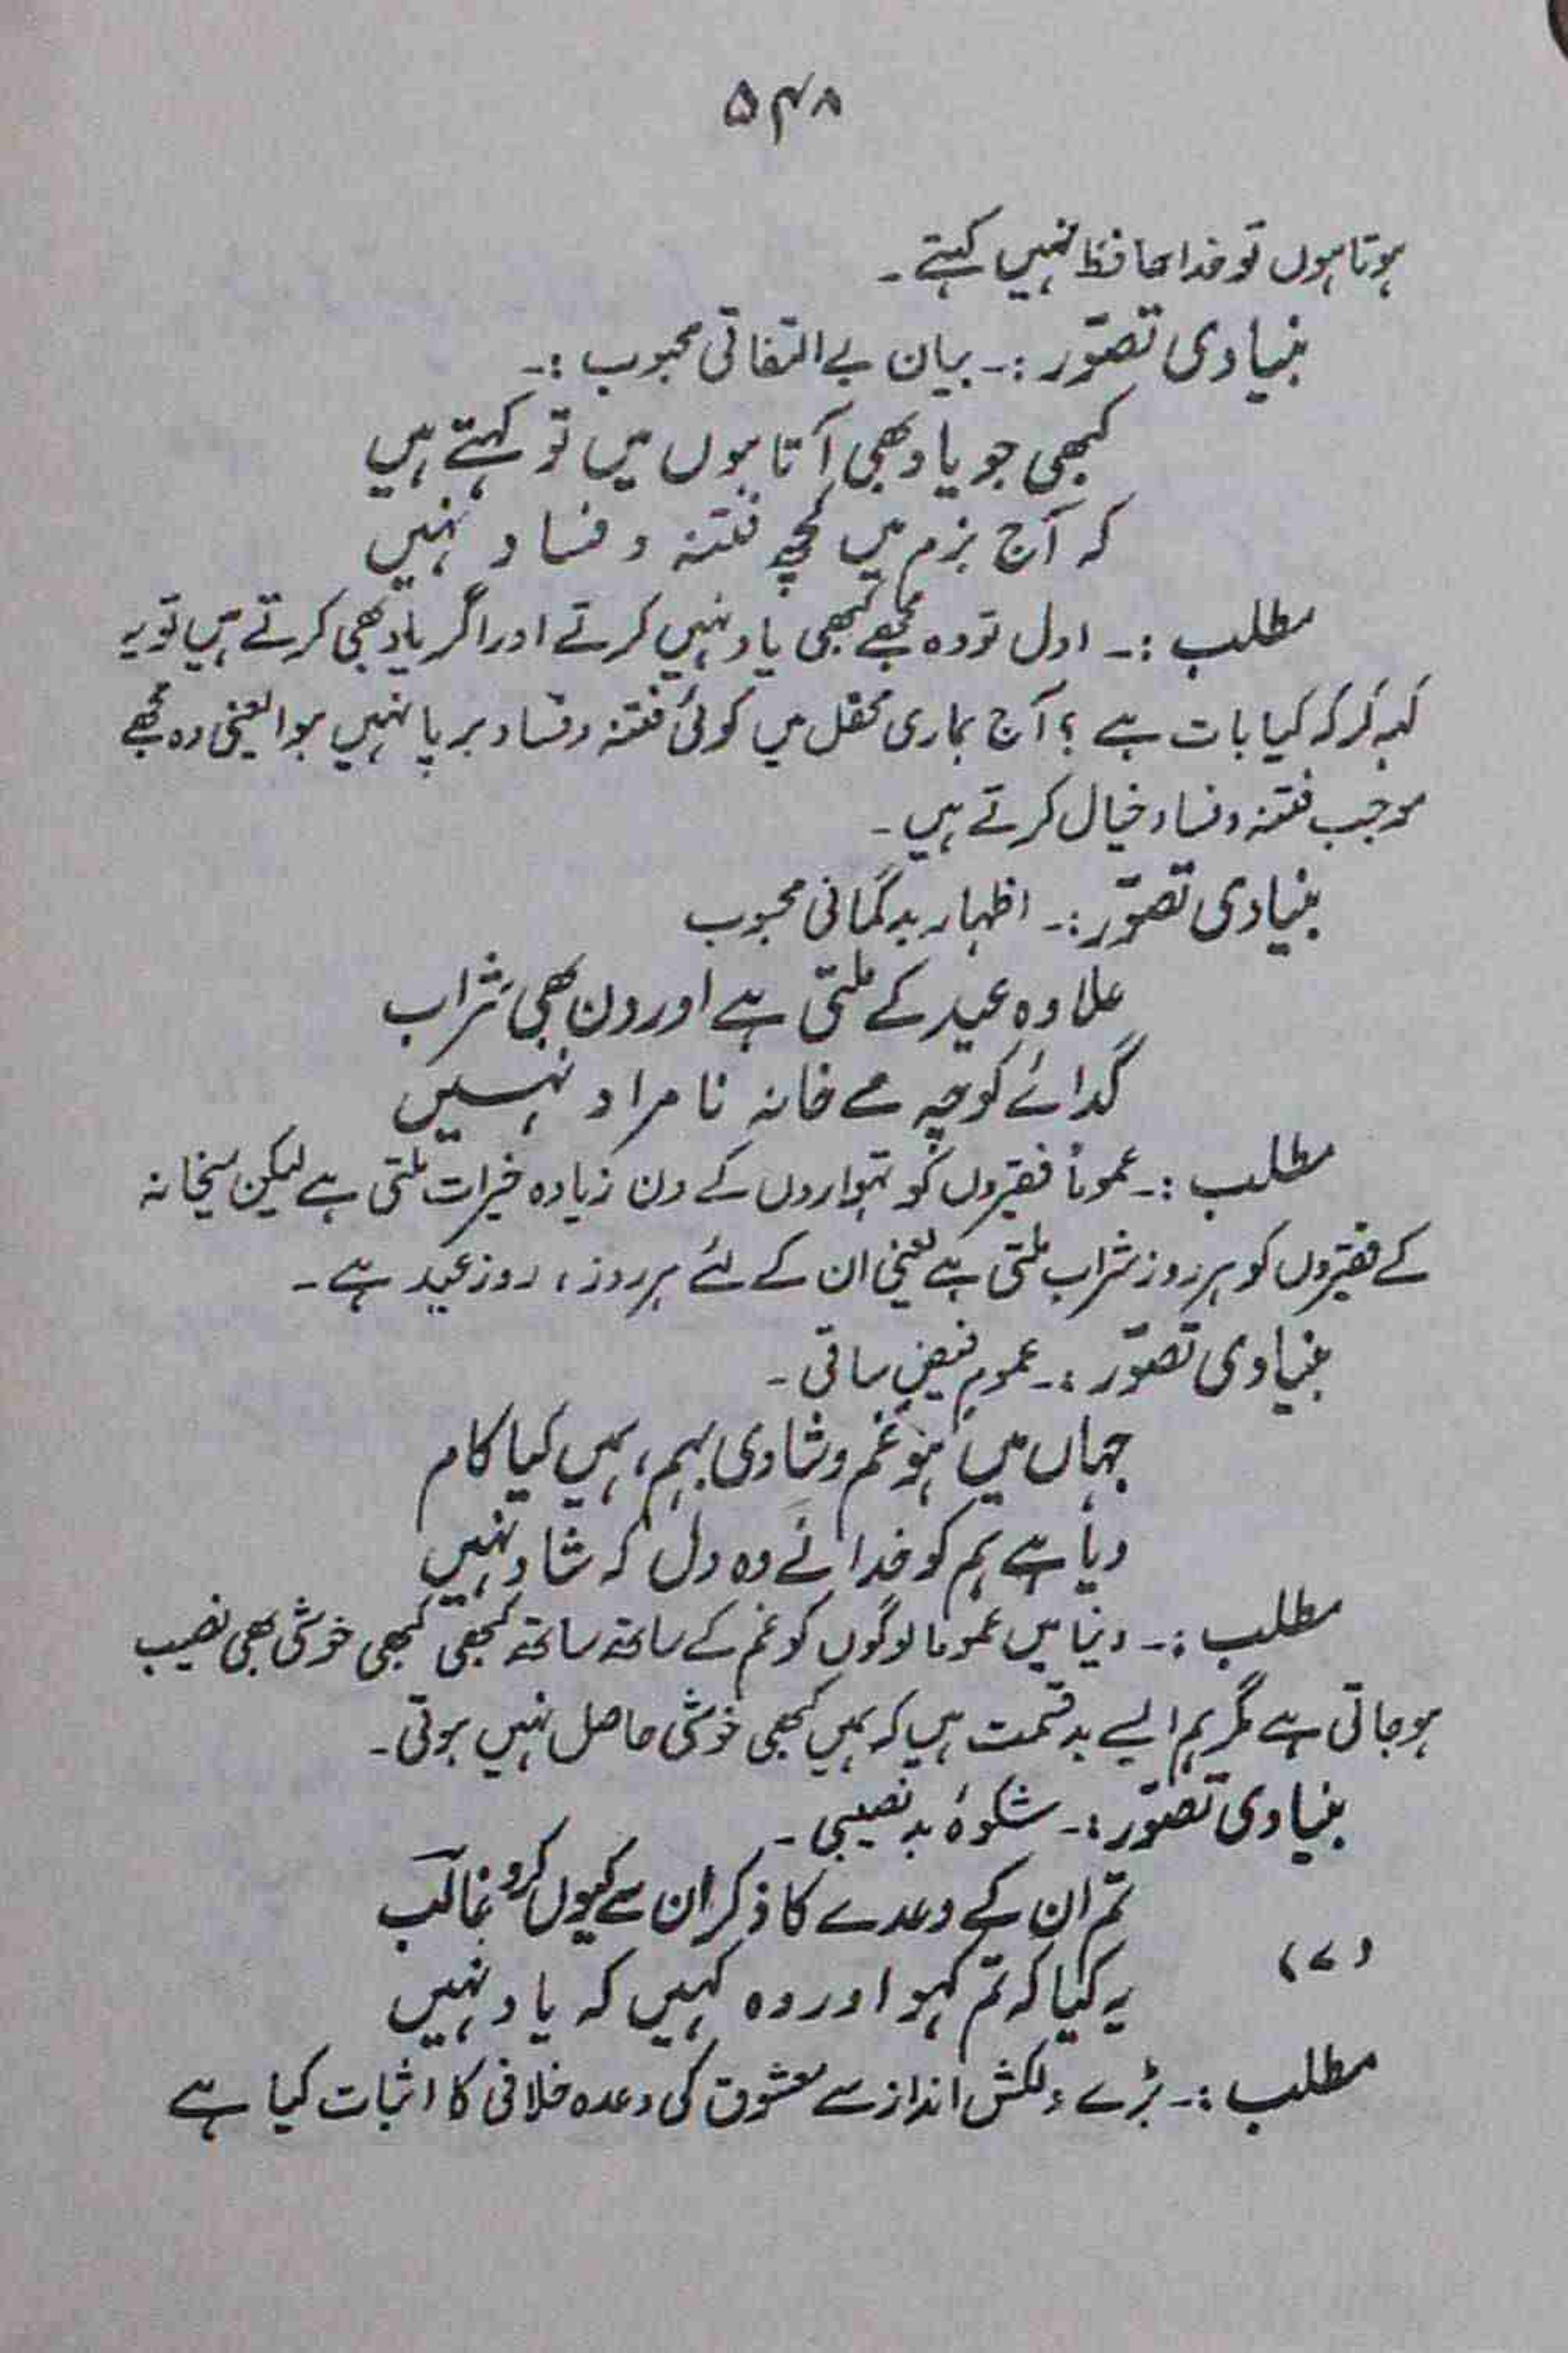 ۵۴۸
ہوتا ہوں تو خدا حافظ نہیں کہتے۔
بنیادی تصوّر :۔ بیان بے التفاتی محبوب :۔
کبھی جو یاد بھی آتا ہوں میں تو کہتے ہیں
کہ آج بزم میں کچھ فتنہ و فساد نہیں
مطلب :۔ اول تو وہ مجھے کبھی یاد نہیں کرتے اور اگر یاد بھی کرتے ہیں تو یہ
کہہ کر کہ کیا بات ہے ؟ آج ہماری محفل میں کوئی فتنہ و فساد برپا نہیں ہوا یعنی وہ مجھے
موجب فتنہ و فساد خیال کرتے ہیں۔
بنیادی تصوّر :۔ اظہار بدگمانی محبوب
علاوہ عید کے ملتی ہے اور دن بھی شراب
گدائے کوچہ مے خانہ نامراد نہیں
مطلب :۔ عموماً فقیروں کو تہواروں کے دن زیادہ خیرات ملتی ہے لیکن میخانہ
کے فقیروں کو ہر روز شراب ملتی ہے یعنی ان کے لئے ہر روز، روز عید ہے۔
بنیادی تصوّر :۔ عمومِ فیضِ ساقی۔
جہاں میں ہو غم و شادی بہم، ہمیں کیا کام
دیا ہے ہم کو خدا نے وہ دل کہ شاد نہیں
مطلب :۔ دنیا میں عموما لوگوں کو غم کے ساتھ ساتھ کبھی کبھی خوشی بھی نصیب
ہو جاتی ہے مگر ہم ایسے بد قسمت ہیں کہ ہمیں کبھی خوشی حاصل نہیں ہوتی۔
بنیادی تصوّر :۔ شکوۂ بد نصیبی۔
تم ان کے وعدے کا ذکر ان سے کیوں کرو غالبؔ
(۷)
یہ کیا کہ تم کہو اور وہ کہیں کہ یاد نہیں
مطلب :۔ بڑے دلکش انداز سے معشوق کی وعدہ خلافی کا اثبات کیا ہے